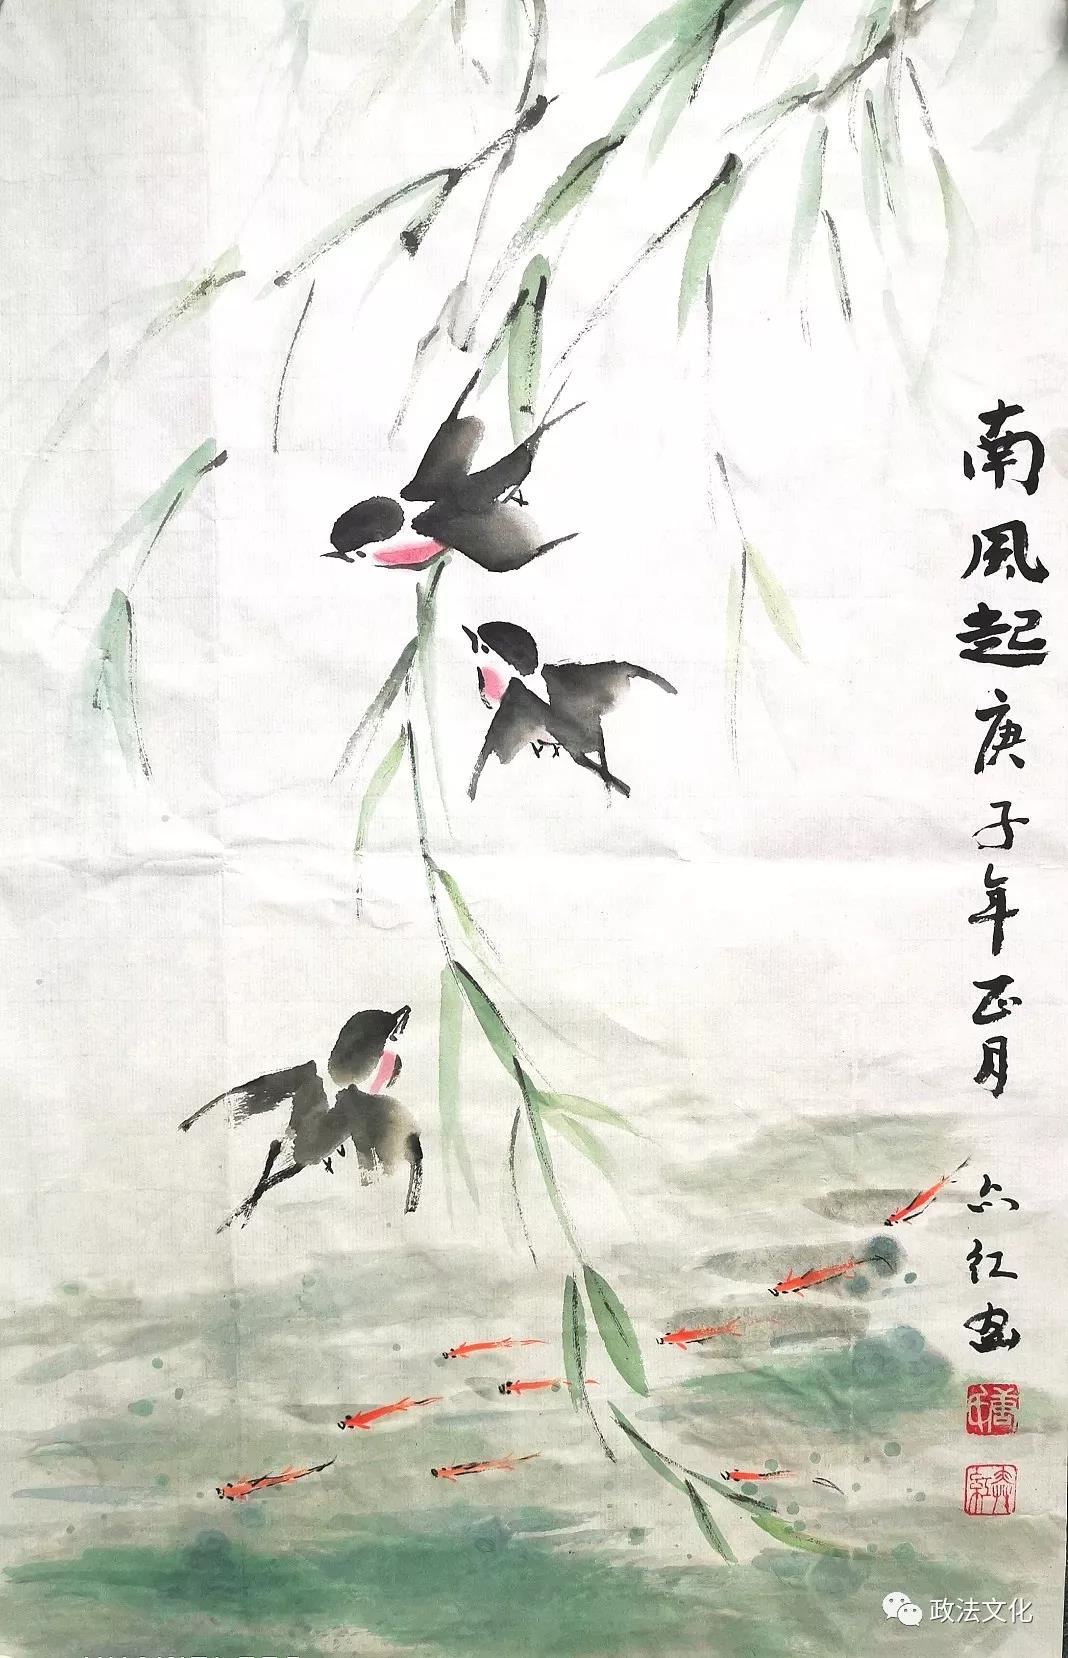 南風起 庚子年正月 亦红画
政法文化